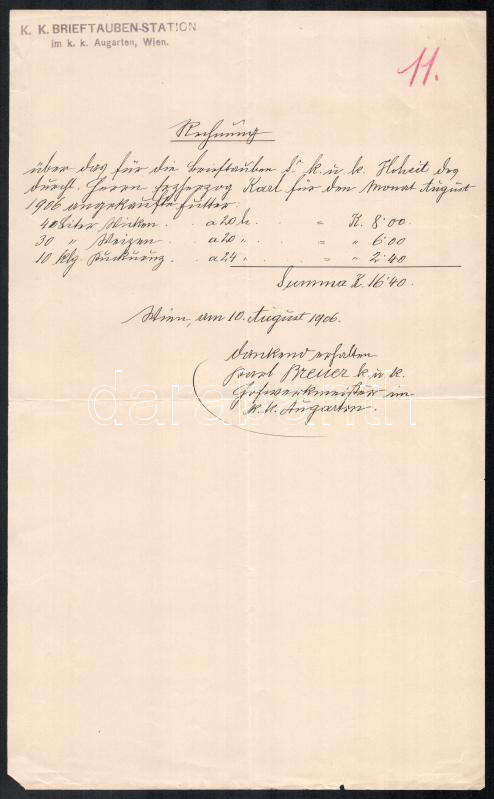 K. K. BRIEFTAUBEN-STATION
im k. k. Augarten, Wien.
11.
Rechnung
über das für die Brieftauben Sr. k. u. k. Hoheit des
durchl. Herrn Erzherzog Karl für den Monat August
1906 angekaufte Futter.
40 Liter Wicken . . a 20 h. = K. 8·00
30 " Weizen . . a 20 " . = " 6·00
10 Klg. Kukuruz . . a 24 " . = " 2·40
Summa K. 16·40.
Wien, am 10. August 1906.
dankend erhalten
Karl Breuer k. u. k.
Hofwerkmeister im
k. k. Augarten.
darabanth